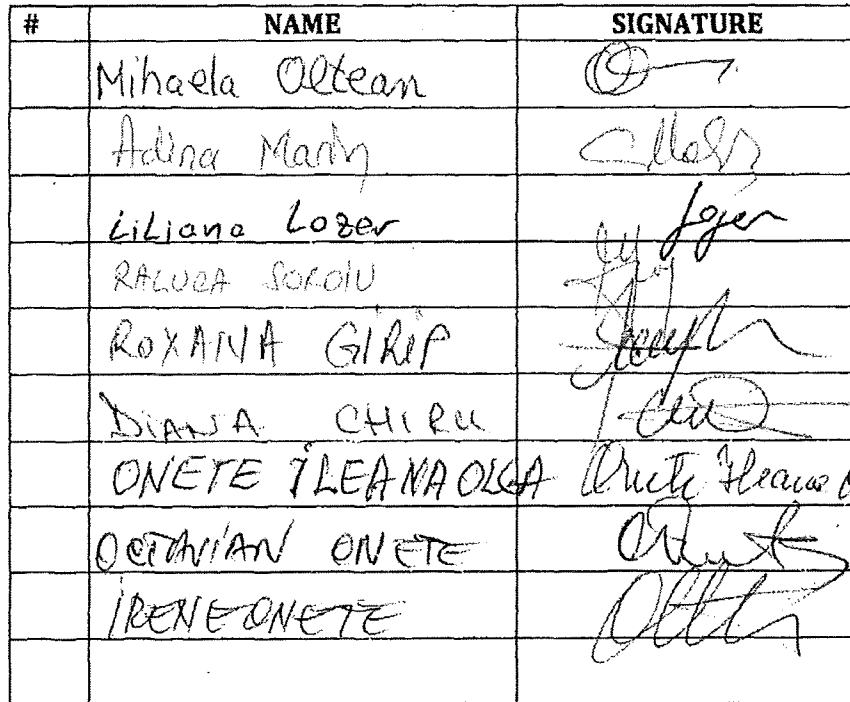 # NAME SIGNATURE
Mihaela Oltean
Adina Marin
Liliana Lozer
RALUCA SOROIU
ROXANA GIRIP
DIANA CHIRU
ONETE ILEANA OLGA Onete Ileana
OCTAVIAN ONETE
IRENE ONETE